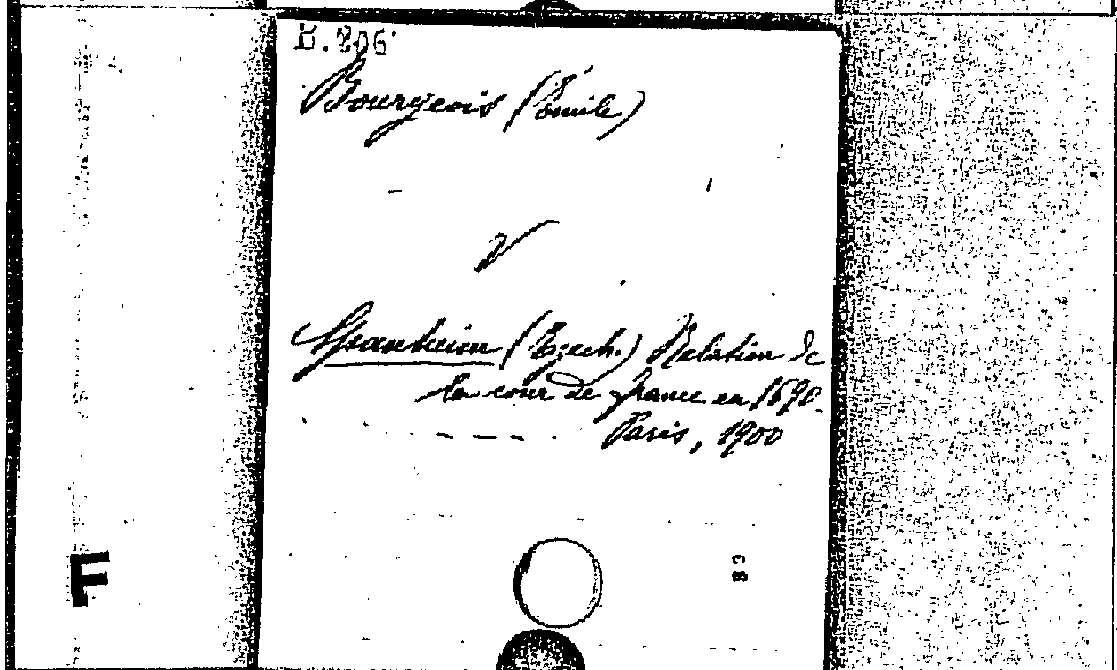 B.206
Bourgeois (Émile)
V
Spanheim (Ezech.) Relation de
la cour de france en 1690.
Paris, 1900
F